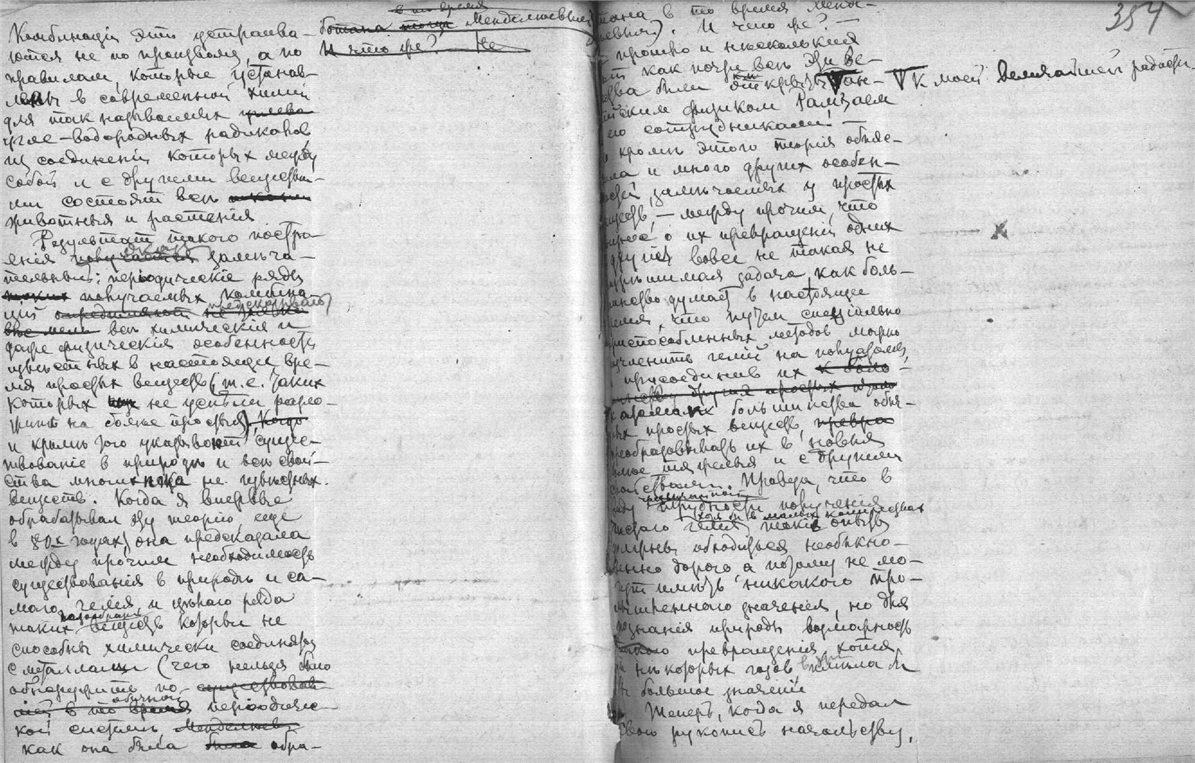 Комбинацiи эти устраива-
ются не по произволу, а по
правилам, которые установ-
лены в современной химiи
для так называемых
угле-водородных радикалов
из соединенiй которых между
собой и с другими вещества-
ми состоят все
животныя и растенiя.
Результат такого постро-
енiя замеча-
тельный: перiодическiе ряды
получаемых комбина-
цiй предсказывают
все химическiя и
даже физическiя особенности
известных в настоящее вре-
мя простых веществ (т.е. таких
которых не успели разло-
жить на более простыя)
и кроме того указывают суще-
ствованiе в природе и все свой-
ства многих пока не известных
веществ. Когда я впервые
обрабатывал эту теорiю, еще
в 80х годах, она предсказала
между прочим необходимость
существованiя в природе и са-
мого гелiя и целаго ряда
таких газообразных веществ которыя не
способны химически соединяться
с металлами (чего нельзя было
обнаружить по
обычной перiодичес-
кой системе
как она была обра-
ботана в то время Менделеевым
И что же? Не
354
в то время Менде-
леевым). И что же?
прошло и нескольких
лет как почти все эти ве-
щества были открыты
физиком Рамзаем
его сотрудниками!
кроме этого теорiя объяс-
нила и много других особен-
ностей, замечаемых у простых
веществ, — между прочим, что
о их превращенiи одних
в другiя вовсе не такая не
разрешимая задача, как боль-
шинство думает в настоящее
время, что путем специально
приспособленных методов можно
расчленить гелiй на полуатомы,
и присоединив их
к атомам большинства обыч-
ных простых веществ,
преобразовывать их в новыя
более тяжелыя и с другими
свойствами. Правда, что в
виду трудности полученiя
чистаго гелiя хотя бы в малых количествах такiе опыты
должны обходиться необыкно-
венно дорого а потому не мо-
гут иметь никакого про-
мышленного значенiя, но для
познанiя природы возможность
такого превращенiя, хотя
некоторых газов имела бы
большое значенiе
Теперь, когда я передал
свою рукопись начальству,
к моей величайшей радости